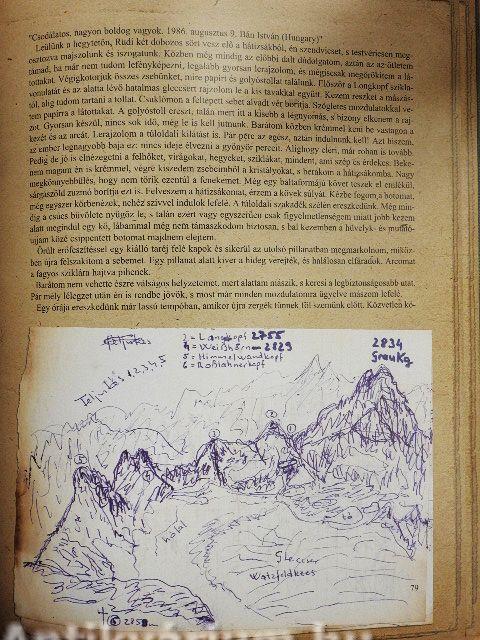 "Csodálatos, nagyon boldog vagyok. 1986. augusztus 9. Bán István (Hungary)"
Leülünk a hegytetőn, Rudi két dobozos sört vesz elő a hátizsákból, én szendvicset, s testvériesen meg-
osztozva majszolunk és iszogatunk. Közben még mindig az előbbi dalt dúdolgatom, aztán az az ötletem
támad, ha már nem tudom lefényképezni, legalább gyorsan lerajzolom, és mégiscsak megörökítem a lá-
tottakat. Végigkotorjuk összes zsebünket, míg papírt és golyóstollat találunk. Először a Longkopf szikla-
vonulatát és az alatta lévő hatalmas gleccsert rajzolom le a kis tavakkal együtt. Kezem reszket a mászás-
tól, alig tudom tartani a tollat. Csuklómon a feltépett sebet alvadt vér borítja. Szögletes mozdulatokkal ve-
tem papírra a látottakat. A golyóstoll ereszt, talán mert itt a kisebb a légnyomás, s bizony elkenem a raj-
zot. Gyorsan készül, nincs sok idő, még le is kell jutnunk. Barátom közben krémmel keni be vastagon a
kezét és az arcát. Lerajzolom a túloldali kilátást is. Pár perc az egész, aztán indulnunk kell! Azt hiszem,
az ember legnagyobb baja ez: nincs ideje élvezni a gyönyör perceit. Alighogy elért, már rohan is tovább.
Pedig de jó is elnézegetni a felhőket, virágokat, hegyeket, sziklákat, mindent, ami szép és érdekes. Beke-
nem magam én is krémmel, végre kiszedem zsebeimből a kristályokat, s berakom a hátizsákomba. Nagy
megkönnyebbülés, hogy nem törik ezentúl a fenekemet. Még egy baltaformájú követ teszek el emlékül,
sárgászöld zuzmó borítja ezt is. Felveszem a hátizsákomat, érzem a kövek súlyát. Kézbe fogom a botomat,
még egyszer körbenézek, nehéz szívvel indulok lefelé. A túloldali szakadék szélén ereszkedünk. Még min-
dig a csúcs bűvölete nyűgöz le, s talán ezért vagy egyszerűen csak figyelmetlenségem miatt jobb kezem
alatt megindul egy kő, lábammal még nem támaszkodom biztosan, s bal kezemben a hüvelyk- és mutató-
ujjam közé csippentett botomat majdnem elejtem.
Őrült erőfeszítéssel egy kiálló taréj felé kapok és sikerül az utolsó pillanatban megmarkolnom, miköz-
ben újra felszakítom a sebemet. Egy pillanat alatt kiver a hideg verejték, és halálosan elfáradok. Arcomat
a fagyos sziklára hajtva pihenek.
Barátom nem vehette észre válságos helyzetemet, mert alattam mászik, s keresi a legbiztonságosabb utat.
Pár mély lélegzet után én is rendbe jövök, s most már minden mozdulatomra ügyelve mászom lefelé.
Egy órája ereszkedünk már lassú tempóban, amikor újra zergék tűnnek fel szemünk előtt. Közvetlen kö-
2 = Langkopf 2755
4 = Weißhorn 2829
5 = Himmelwandkopf
6 = Roßlahnerkopf
2834
GrauKg
1, 2, 3, 4, 5
hófal
Glecser
Watzfeldkees
2850 m
79